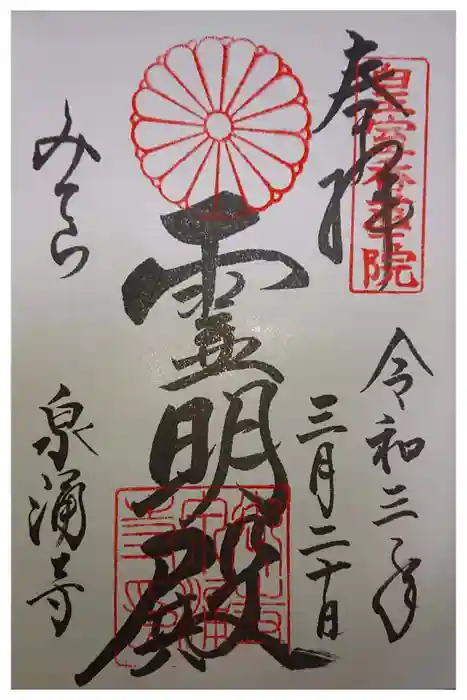 奉拝
皇室香華院
令和三年
三月二十日
霊明殿
みてら
泉涌寺